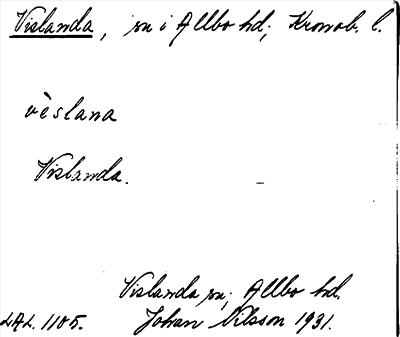 Vislanda, sn i Allbo hd; Kronob. l.
vèslana
Vislanda.
Vislanda sn; Allbo hd.
LAL. 1105. Johan Nilsson 1931.